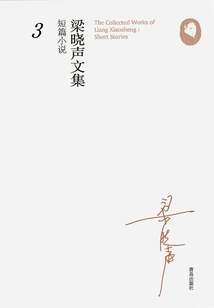 The Collected Works of
Liang Xiaosheng :
Short Stories
梁晓声文集
短篇小说
3
梁晓声
青岛出版社